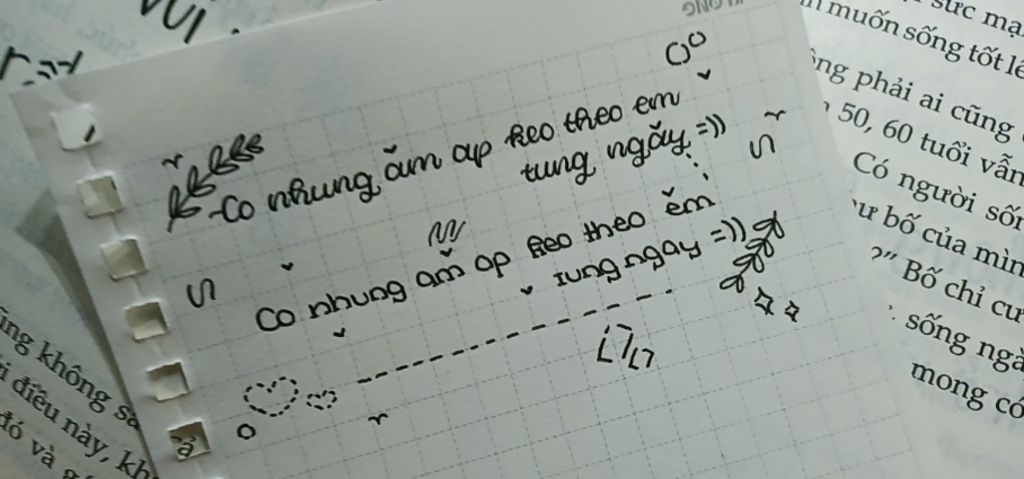 -Co nhung ăm ap keo theo em
tung ngăy =))
Co nhung ăm ap keo theo ĕm
tung ngay =))
sức mạ
muốn sống tốt lê
ng phải ai cũng
50, 60 tuổi vẫn
Có người sốn
ư bố của mìn
?” Bố chỉ cư
sống ngà
mong có
ng không sa
i điều này, kh
đó và g